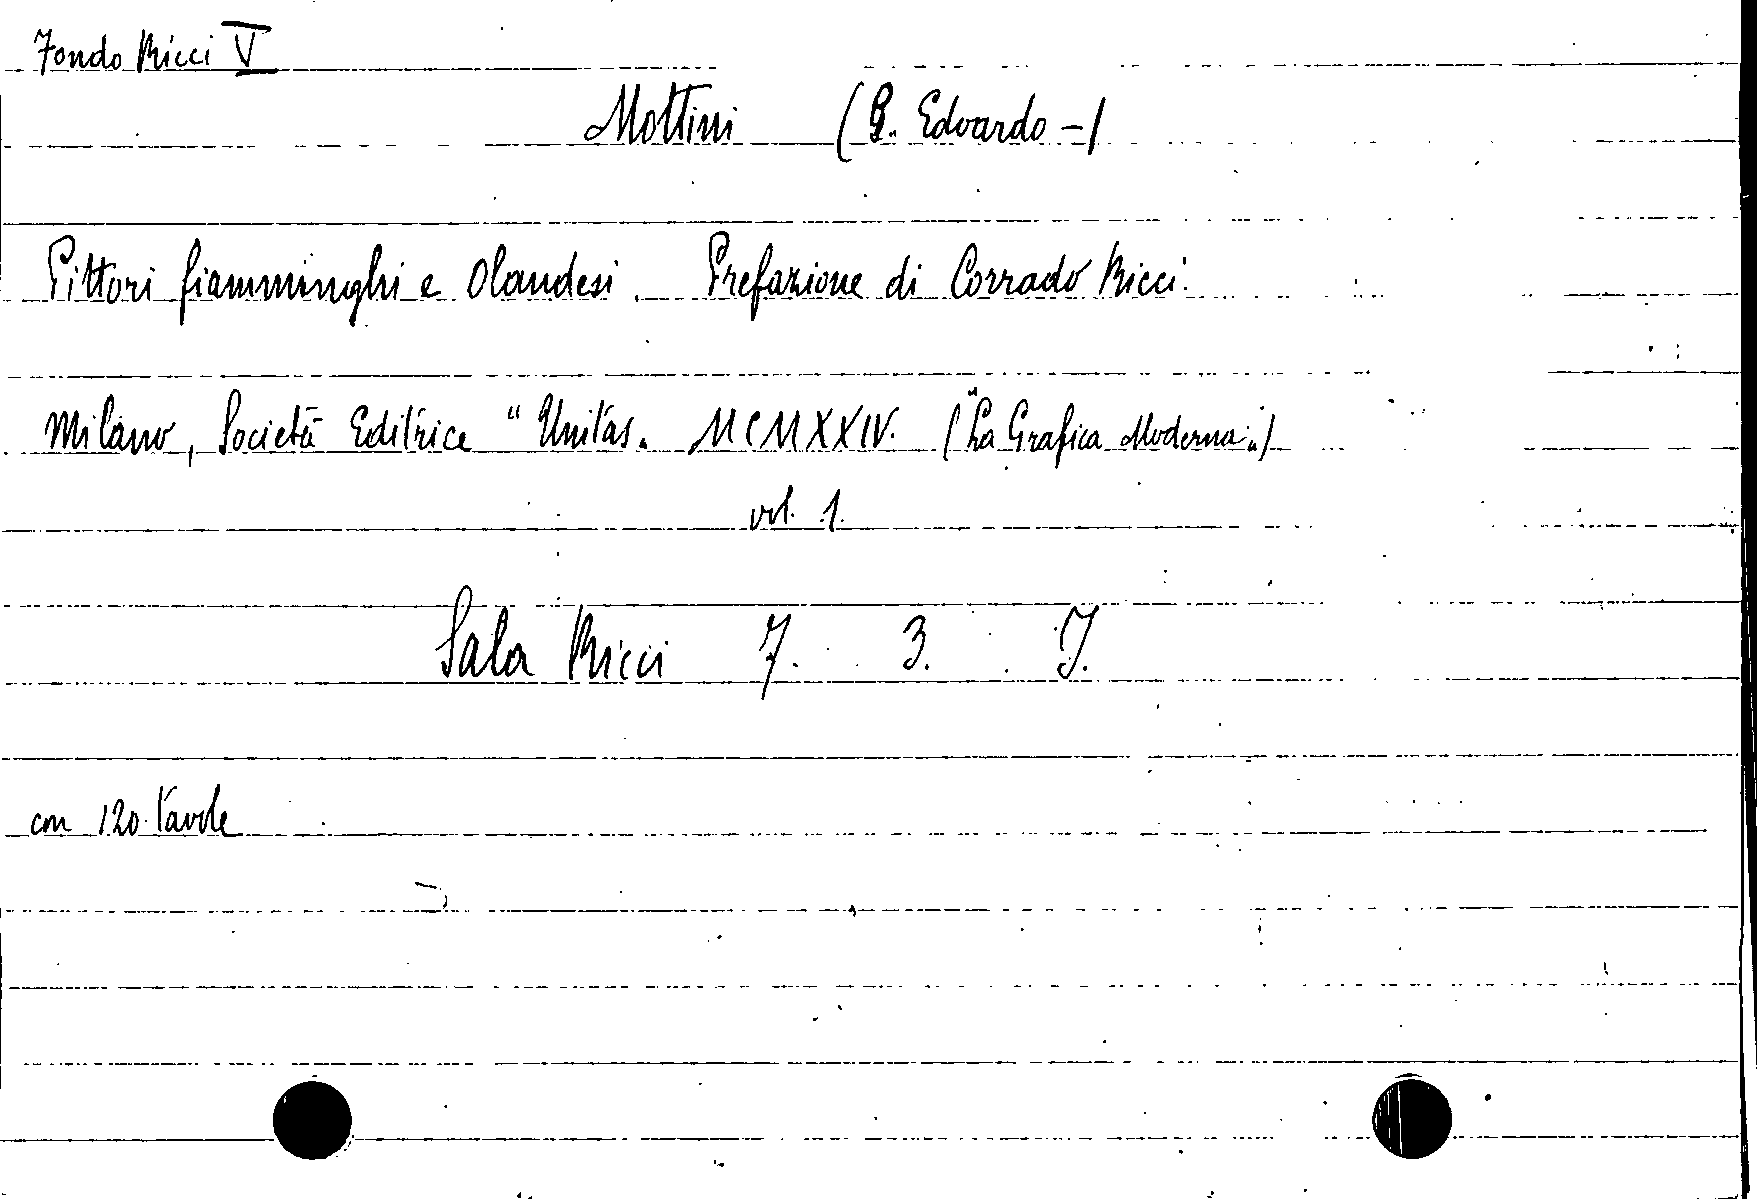 Fondo Ricci V
Mottini (G. Edoardo -)
Pittori fiamminghi e olandesi. Prefazione di Corrado Ricci.
Milano, Società Editrice "Unitas„ MCMXXIV. ("La Grafica Moderna„)
vol. 1.
Sala Ricci 7. 3. I.
con 120 tavole